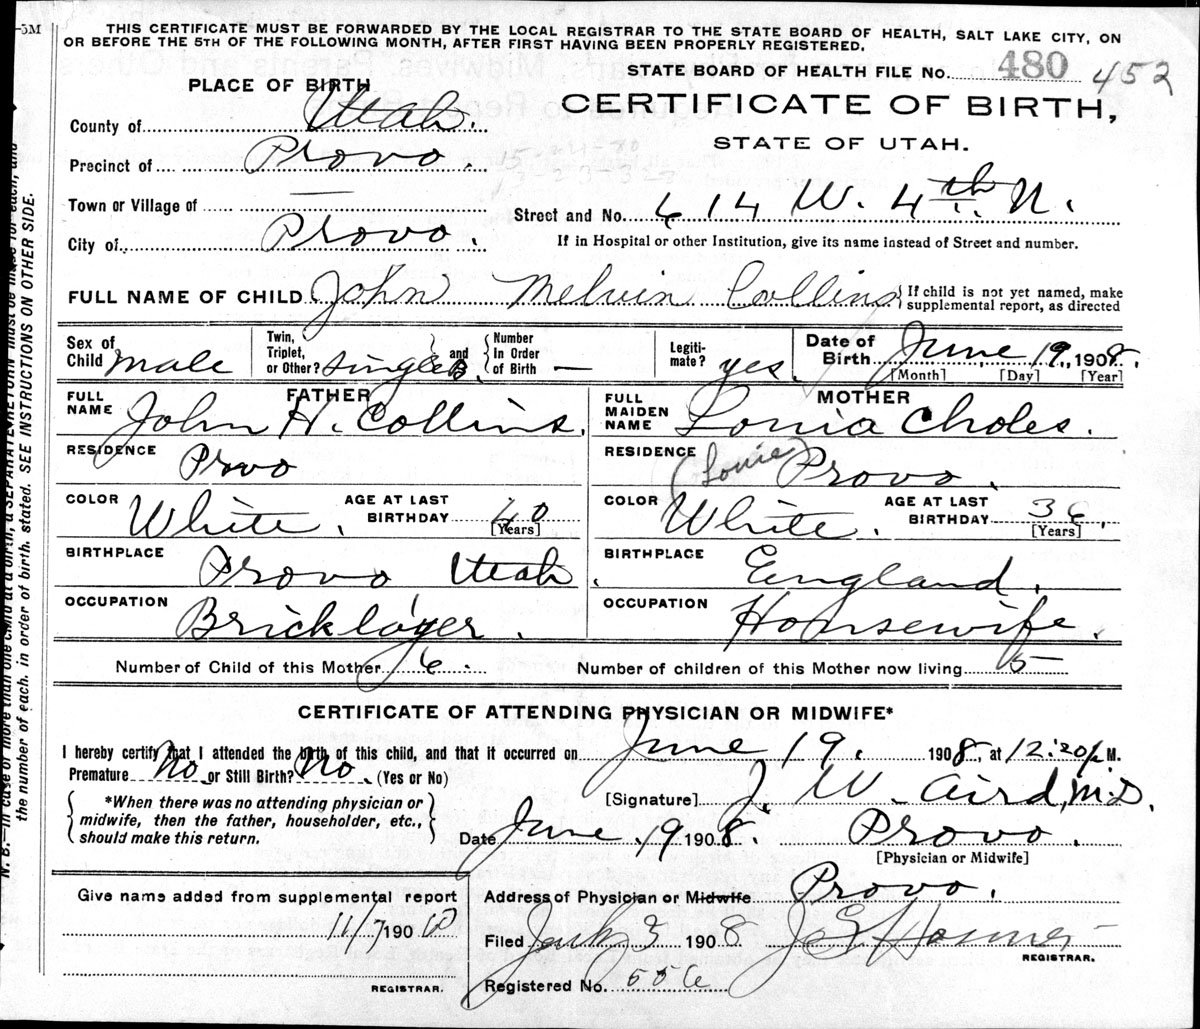 -5M
THIS CERTIFICATE MUST BE FORWARDED BY THE LOCAL REGISTRAR TO THE STATE BOARD OF HEALTH, SALT LAKE CITY, ON
OR BEFORE THE 5TH OF THE FOLLOWING MONTH, AFTER FIRST HAVING BEEN PROPERLY REGISTERED.
STATE BOARD OF HEALTH FILE No. 480 452
PLACE OF BIRTH
CERTIFICATE OF BIRTH,
STATE OF UTAH.
County of Utah.
Precinct of Provo.
Town or Village of —
Street and No. 614 W. 4th. N.
City of Provo.
If in Hospital or other Institution, give its name instead of Street and number.
FULL NAME OF CHILD John Melvin Collins { If child is not yet named, make supplemental report, as directed
Sex of Child male Twin, Triplet, or Other? Single } and { Number In Order of Birth — Legiti-mate? yes. Date of Birth June 19, 1908. [Month] [Day] [Year]
FATHER MOTHER
FULL NAME John H. Collins. FULL MAIDEN NAME Louia Choles.
RESIDENCE Provo RESIDENCE (Louie) Provo.
COLOR White. AGE AT LAST BIRTHDAY 40 [Years] COLOR White. AGE AT LAST BIRTHDAY 36. [Years]
BIRTHPLACE Provo Utah. BIRTHPLACE England.
OCCUPATION Bricklayer. OCCUPATION Housewife.
Number of Child of this Mother 6. Number of children of this Mother now living 5
CERTIFICATE OF ATTENDING PHYSICIAN OR MIDWIFE*
I hereby certify that I attended the birth of this child, and that it occurred on June 19. 1908, at 12:20 P. M.
Premature No or Still Birth? No. (Yes or No)
[Signature] J. W. Aird, M.D.
{ *When there was no attending physician or midwife, then the father, householder, etc., should make this return. }
Date June 19 1908. Provo.
[Physician or Midwife]
Give name added from supplemental report
Address of Physician or Midwife Provo.
11/7 1910
Filed July 3 1908 J E Homer
REGISTRAR.
REGISTRAR.
Registered No. 556
N. B.—In case of more than one child at a birth, a SEPARATE RETURN must be made for each, and
the number of each, in order of birth, stated. SEE INSTRUCTIONS ON OTHER SIDE.